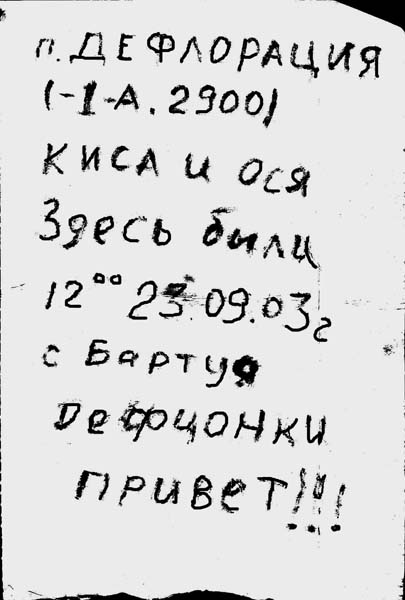 п. ДЕФЛОРАЦИЯ
(-1-А. 2900)
КИСА И ОСЯ
Здесь были
12⁰⁰ 23.09.03г
с Бартуя
Дефчонки
ПРИВЕТ!!!